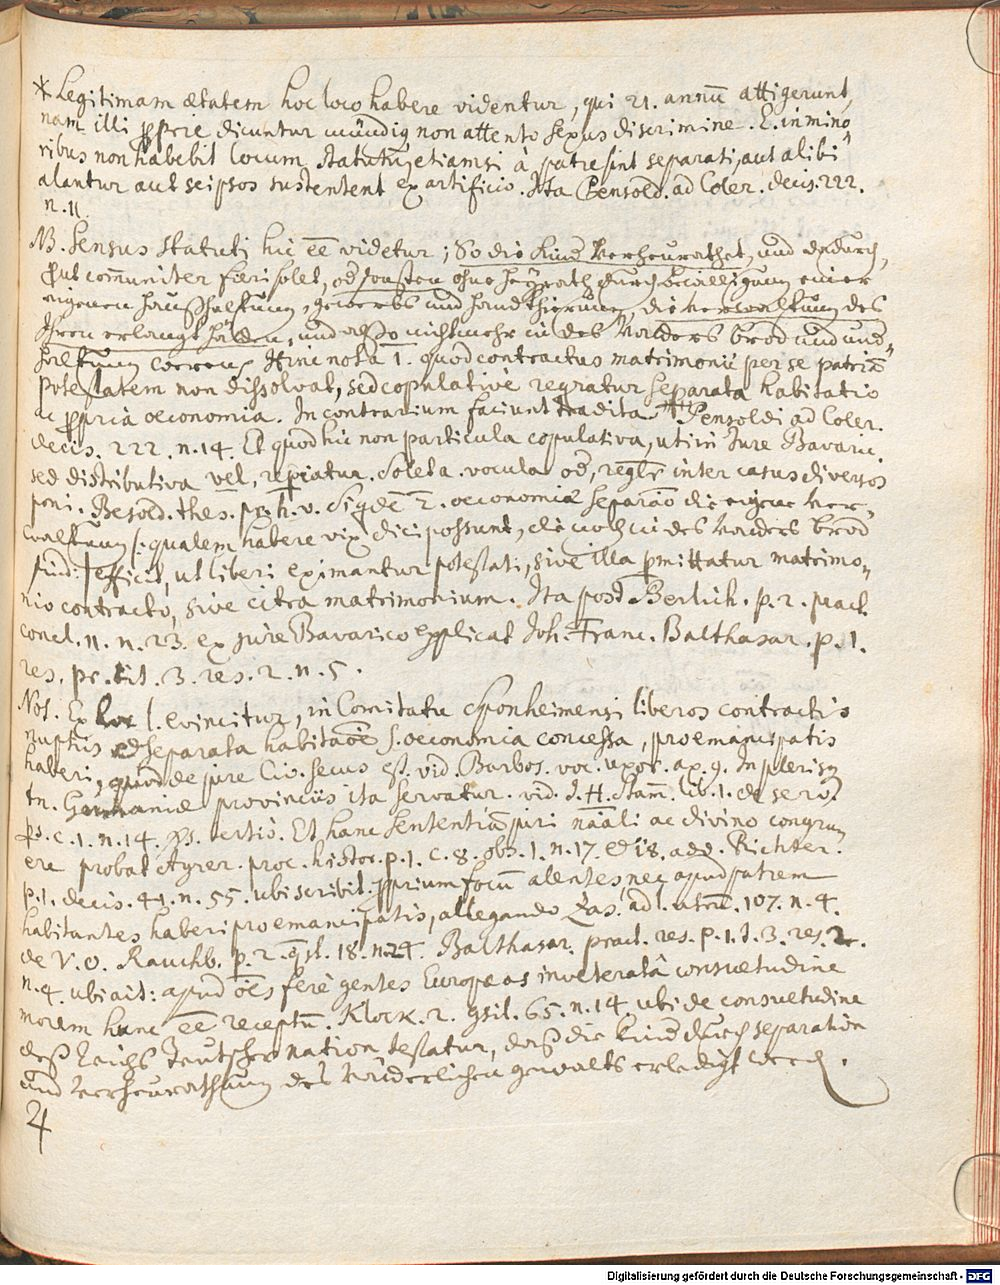 * Legitimam ætatem hoc loco habere videntur, qui 21. annū attigerunt,
nam illi ꝓprie dicuntur mündig, non attento sexus discrimine. E. in mino,,
ribus non habebit locum statutū, etiamsi à patre sint separati, aut alibi
alantur aut seipsos sustentent ex artificio. Ita Pensold. ad Coler. decis. 222.
n. 11.
NB. Sensus statuti hic eē videtur; So die Kind Verheurathet, und dadurch,
ꝓut com̄uniter fieri solet, od sonsten ohne heÿrath durch bewilligung einer
eigenen haußhaltung, gewerbs und handthierung, die verwaltung des
Ihren erlangt hätten, und also nicht mehr in des Vatters brod und und,,
haltung weren. Hinc nota 1. quod contractus matrimonii per se patriā
potestatem non dissolvat, sed copulativè reqratur separata habitatio
ac ꝓpria œconomia. In contrarium faciunt tradita Pensoldi ad Coler.
decis. 222. n. 14. Et quod hic non particula copulativa, uti in Jure Bavaric.
sed distributiva vel, repiatur. Soleta. vocula od, reglr inter casus diversos
poni. Besold. thes. pr. h. v. Sigdē 2. œconomiæ separāo die eigene Ver-
waltung /: qualem habere vix dici possunt, die noch in des Vatters brod
sind :/ efficit, ut liberi eximantur potestati, sive illa pmittatur matrimo,,
nio contracto, sive citra matrimonium. Ita post Berlich. p. 2. pract.
concl. 11. n. 23. ex jure Bavarico explicat Joh. Franc. Balthasar. p. 1.
res. pr. tit. 3. res. 2. n. 5.
Not. Ex hoc l. evincitur, in Comitatu Sponheimensi liberos contractis
nuptiis et separata habitaōe s. œconomia concessa, pro emancipatis
haberi, quod de jure Civ. secus est. vid. Barbos. voc. uxor. ax. 9. In plerisq
tn. Germaniæ provinciis ita servatur. vid. J. H. Stam. lib. 1. de servo.
ps. c. 1. n. 14. tertiò. Et hanc sententiā juri nāali ac divino congru,,
ere probat Ayrer. proc. histor. p. 1. c. 8. obs. 1. n. 17. et 18. add. Richter.
p. 1. decis. 41. n. 55. ubi scribit ꝓprium focū alentes, nec apud patrem
habitantes haberi pro emancipatis, allegando Zas. ad l. 107. n. 4.
de V. O. Rauchb. p. 2. qst. 18. n. 24. Balthasar. pract. res. p. 1. t. 3. res. 2.
n. 4. ubi ait: apud oēs ferè gentes Europæas inveteratâ consuetudine
morem hunc eē receptū. Klock. 2. gsil. 65. n. 14. ubi de consuetudine
deß Reichs Teutscher nation testatur, daß die Kind durch separation
und Verheurathung des Vatterlichen gewalts erledigt werd.
Digitalisierung gefördert durch die Deutsche Forschungsgemeinschaft - DFG